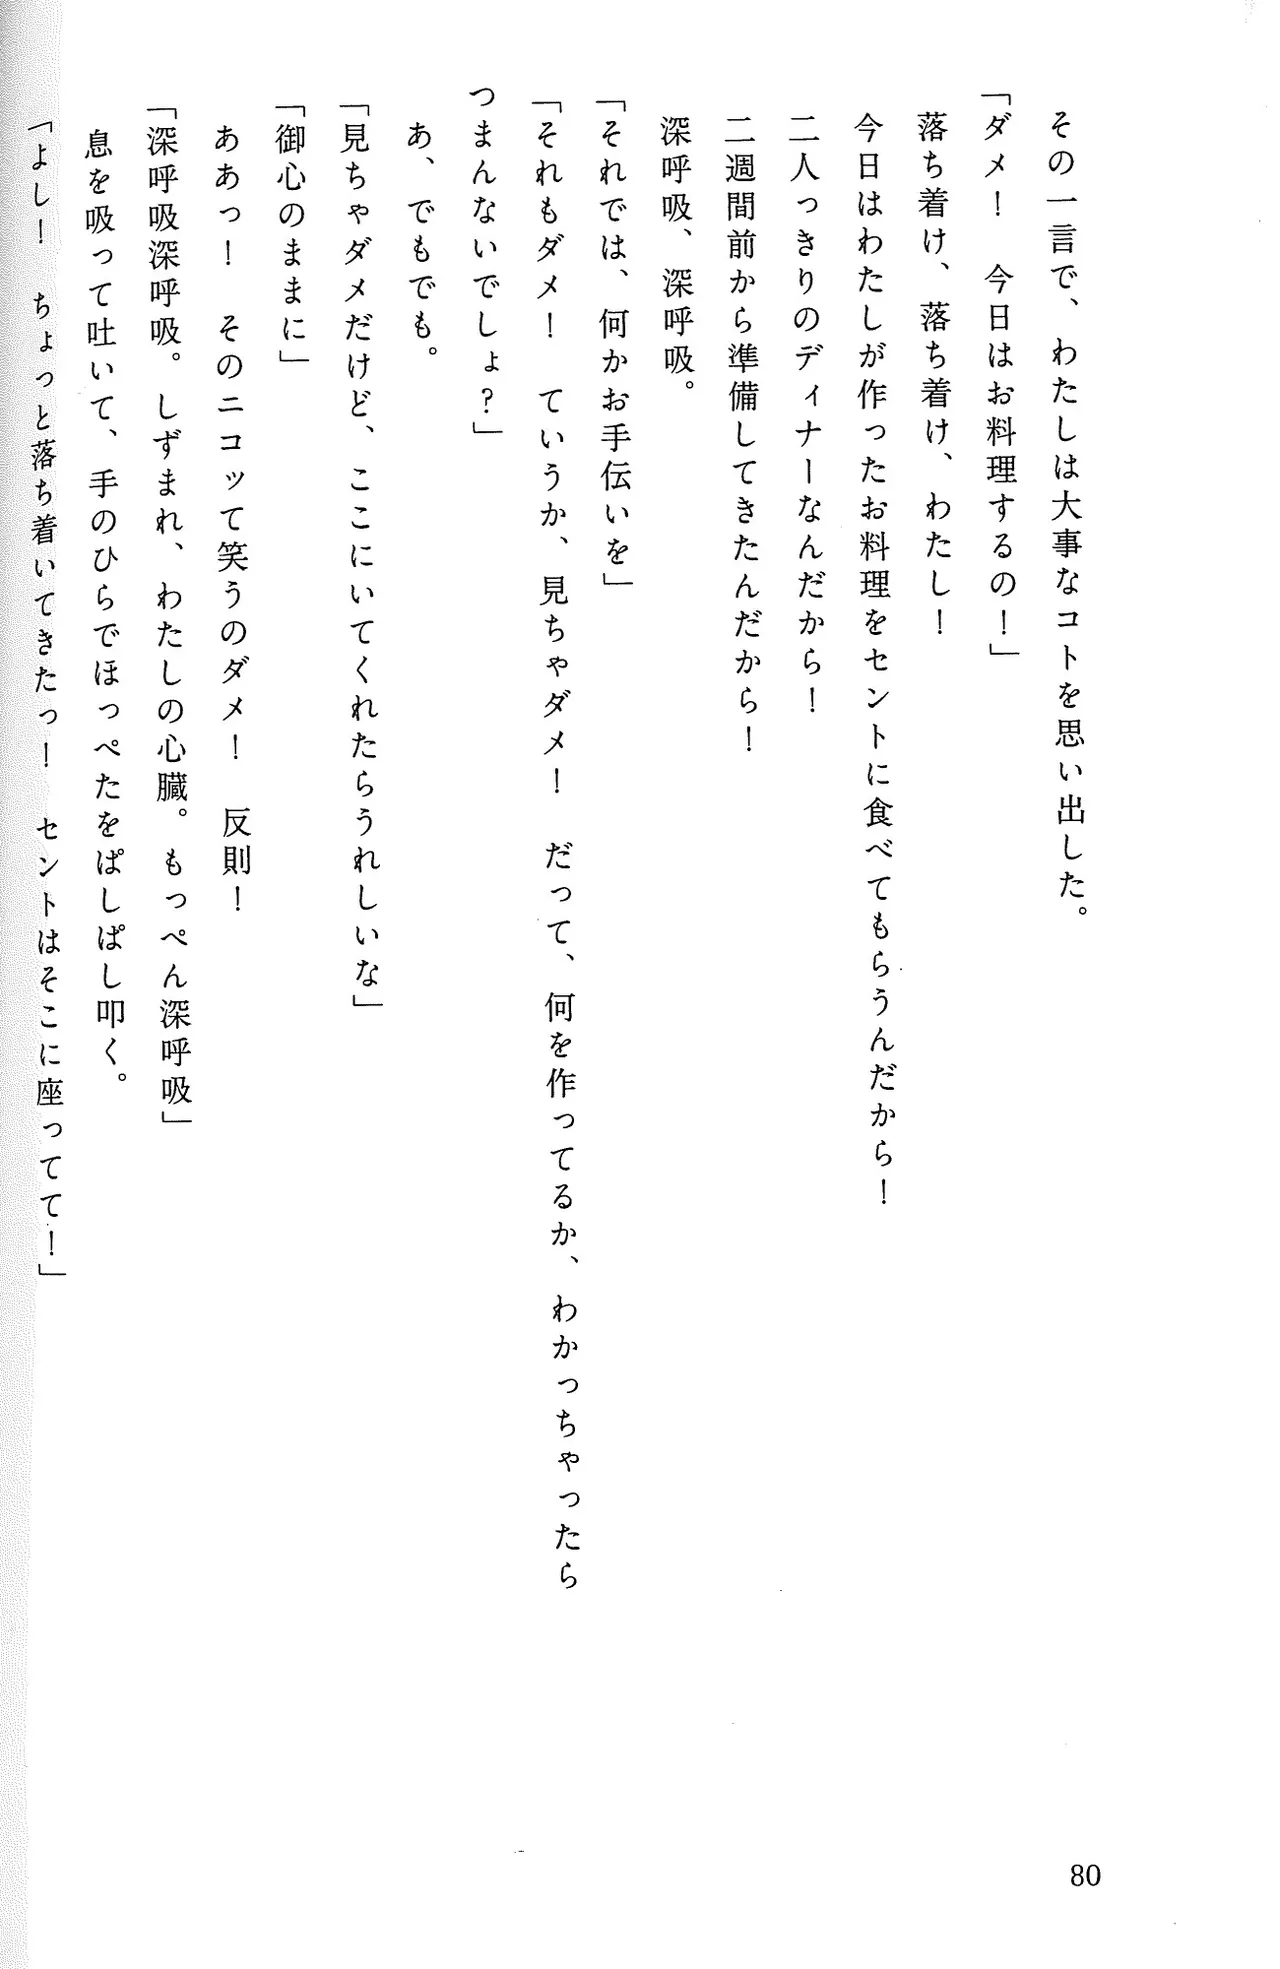 その一言で、わたしは大事なコトを思い出した。
「ダメ！　今日はお料理するの！」
落ち着け、落ち着け、わたし！
今日はわたしが作ったお料理をセントに食べてもらうんだから！
二人っきりのディナーなんだから！
二週間前から準備してきたんだから！
深呼吸、深呼吸。
「それでは、何かお手伝いを」
「それもダメ！　ていうか、見ちゃダメ！　だって、何を作ってるか、わかっちゃったら
つまんないでしょ？」
あ、でもでも。
「見ちゃダメだけど、ここにいてくれたらうれしいな」
「御心のままに」
ああっ！　そのニコッて笑うのダメ！　反則！
「深呼吸深呼吸。しずまれ、わたしの心臓。もっぺん深呼吸」
息を吸って吐いて、手のひらでほっぺたをぱしぱし叩く。
「よし！　ちょっと落ち着いてきたっ！　セントはそこに座ってて！」
80